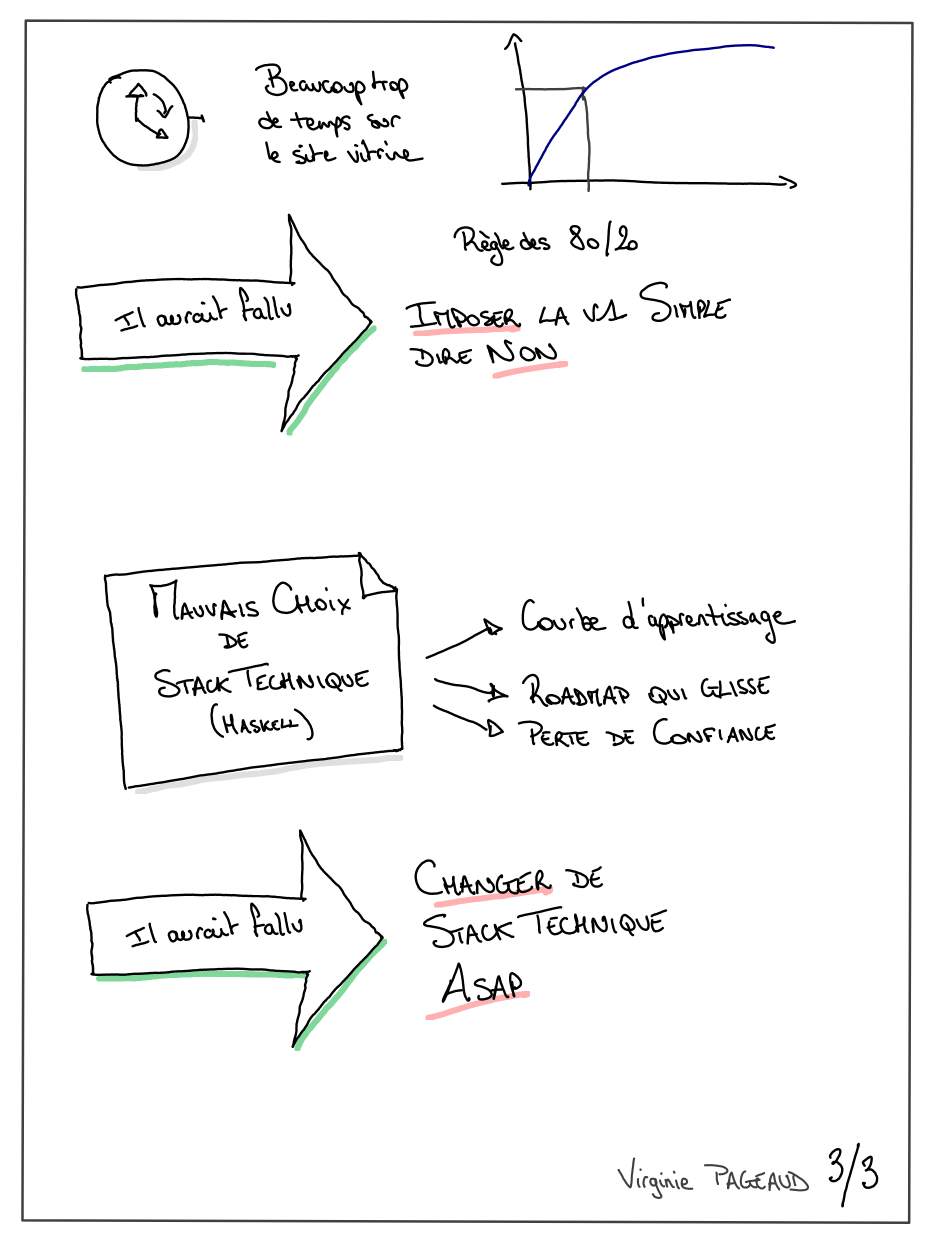 Beaucoup trop
de temps sur
le site vitrine
Règle des 80/20
Il aurait fallu
IMPOSER LA V1 SIMPLE
DIRE NON
MAUVAIS CHOIX
DE
STACK TECHNIQUE
(HASKELL)
Courbe d'apprentissage
ROADMAP QUI GLISSE
PERTE DE CONFIANCE
Il aurait fallu
CHANGER DE
STACK TECHNIQUE
ASAP
Virginie PAGEAUD 3/3